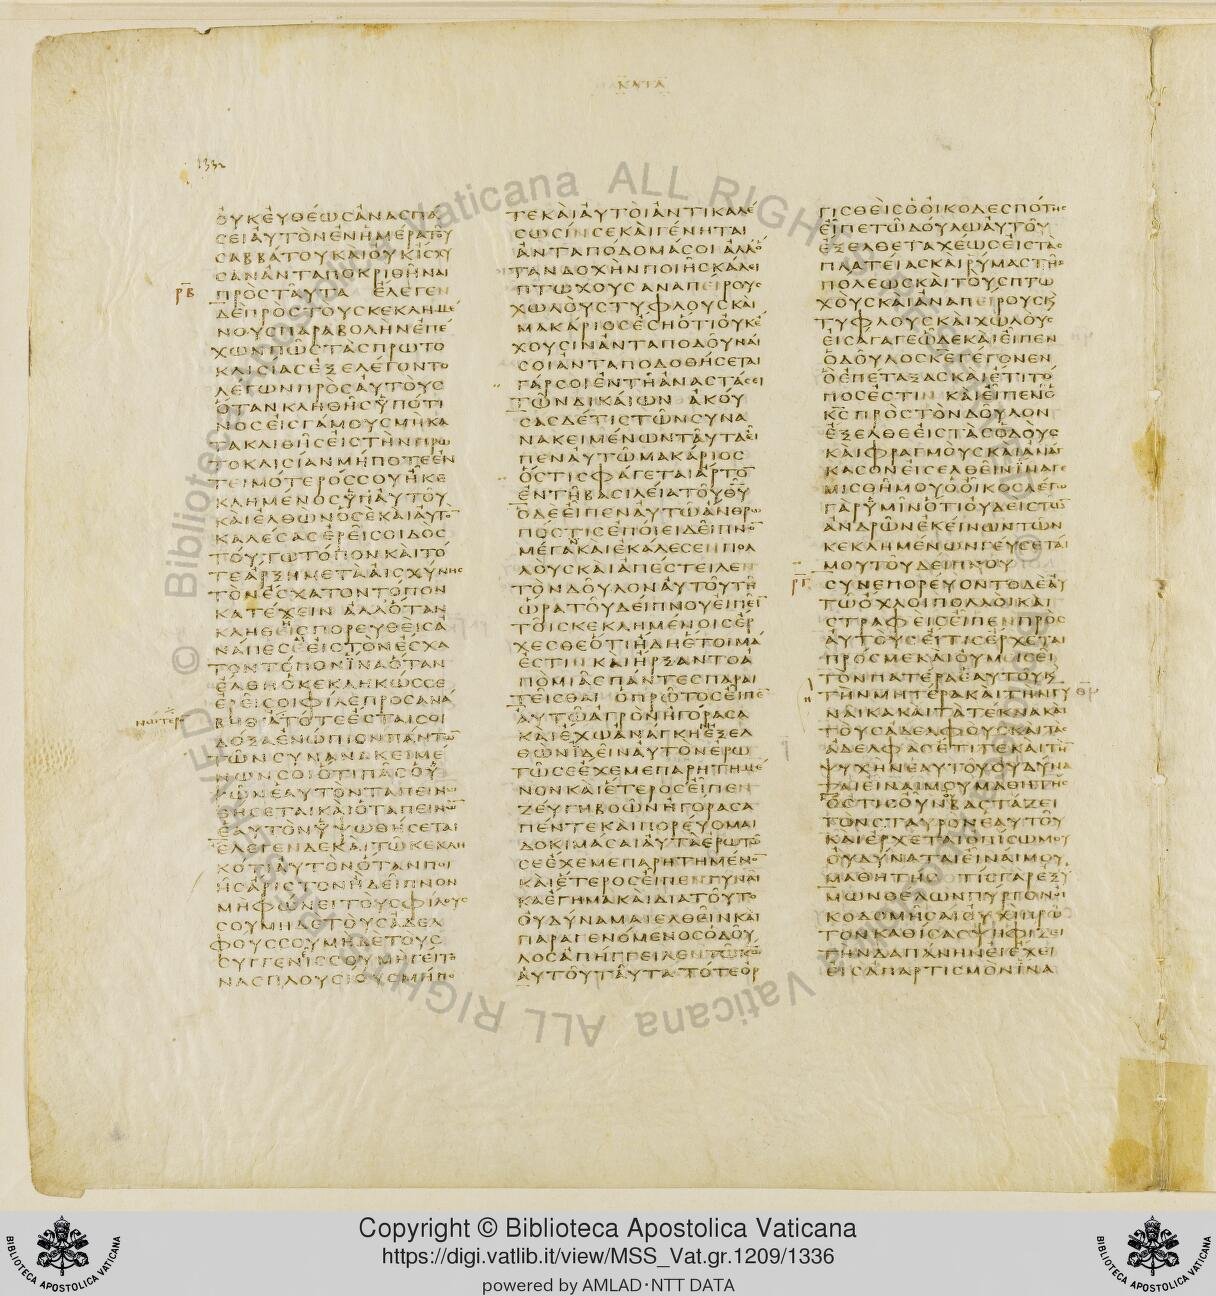 ΚΑΤΑ
1332
ΟΥΚΕΥΘΕΩΣΑΝΑΣΠΑ
ΣΕΙΑΥΤΟΝΕΝΗΜΕΡΑΤΟΥ
ΣΑΒΒΑΤΟΥΚΑΙΟΥΚΙΣΧΥ
ΣΑΝΑΝΤΑΠΟΚΡΙΘΗΝΑΙ
ΡΒ
ΠΡΟΣΤΑΥΤΑ ΕΛΕΓΕΝ
ΔΕΠΡΟΣΤΟΥΣΚΕΚΛΗΜΕ
ΝΟΥΣΠΑΡΑΒΟΛΗΝΕΠΕ
ΧΩΝΠΩΣΤΑΣΠΡΩΤΟ
ΚΛΙΣΙΑΣΕΞΕΛΕΓΟΝΤΟ
ΛΕΓΩΝΠΡΟΣΑΥΤΟΥΣ
ΟΤΑΝΚΛΗΘΗΣΥΠΟΤΙ
ΝΟΣΕΙΣΓΑΜΟΥΣΜΗΚΑ
ΤΑΚΛΙΘΗΣΕΙΣΤΗΝΠΡΩ
ΤΟΚΛΙΣΙΑΝΜΗΠΟΤΕΕΝ
ΤΕΙΜΟΤΕΡΟΣΣΟΥΗΚΕ
ΚΛΗΜΕΝΟΣΥΠΑΥΤΟΥ
ΚΑΙΕΛΘΩΝΟΣΕΚΑΙΑΥΤΟ
ΚΑΛΕΣΑΣΕΡΕΙΣΟΙΔΟΣ
ΤΟΥΤΩΤΟΠΟΝΚΑΙΤΟ
ΤΕΑΡΞΗΜΕΤΑΑΙΣΧΥΝΗΣ
ΤΟΝΕΣΧΑΤΟΝΤΟΠΟΝ
ΚΑΤΕΧΕΙΝ ΑΛΛΟΤΑΝ
ΚΛΗΘΗΣΠΟΡΕΥΘΕΙΣΑ
ΝΑΠΕΣΕΕΙΣΤΟΝΕΣΧΑ
ΤΟΝΤΟΠΟΝΙΝΑΟΤΑΝ
ΕΛΘΗΟΚΕΚΛΗΚΩΣΣΕ
ΕΡΕΙΣΟΙΦΙΛΕΠΡΟΣΑΝΑ
ΒΗΘΙΑΤΟΤΕΕΣΤΑΙΣΟΙ
ΔΟΞΑΕΝΩΠΙΟΝΠΑΝΤΩ
ΤΩΝΣΥΝΑΝΑΚΕΙΜΕ
ΝΩΝΣΟΙΟΤΙΠΑΣΟΥ
ΨΩΝΕΑΥΤΟΝΤΑΠΕΙΝΩ
ΘΗΣΕΤΑΙΚΑΙΟΤΑΠΕΙΝΩ
ΕΑΥΤΟΝΥΨΩΘΗΣΕΤΑΙ
ΕΛΕΓΕΝΔΕΚΑΙΤΩΚΕΚΛΗ
ΚΟΤΙΑΥΤΟΝΟΤΑΝΠΟΙ
ΗΣΑΡΙΣΤΟΝΗΔΕΙΠΝΟΝ
ΜΗΦΩΝΕΙΤΟΥΣΦΙΛΟΥΣ
ΣΟΥΜΗΔΕΤΟΥΣΑΔΕΛ
ΦΟΥΣΣΟΥΜΗΔΕΤΟΥΣ
ΣΥΓΓΕΝΙΣΣΟΥΜΗΓΕΙΤΟ
ΝΑΣΠΛΟΥΣΙΟΥΣΜΗΠΟ
ΤΕΚΑΙΑΥΤΟΙΑΝΤΙΚΑΛΕ
ΣΩΣΙΝΣΕΚΑΙΓΕΝΗΤΑΙ
ΑΝΤΑΠΟΔΟΜΑΣΟΙΑΛΛΟ
ΤΑΝΔΟΧΗΝΠΟΙΗΣΚΑΛΕΙ
ΠΤΩΧΟΥΣΑΝΑΠΕΙΡΟΥΣ
ΧΩΛΟΥΣΤΥΦΛΟΥΣΚΑΙ
ΜΑΚΑΡΙΟΣΕΣΗΟΤΙΟΥΚΕ
ΧΟΥΣΙΝΑΝΤΑΠΟΔΟΥΝΑΙ
ΣΟΙΑΝΤΑΠΟΔΟΘΗΣΕΤΑΙ
ΓΑΡΣΟΙΕΝΤΗΑΝΑΣΤΑΣΕΙ
ΤΩΝΔΙΚΑΙΩΝ ΑΚΟΥ
ΣΑΣΔΕΤΙΣΤΩΝΣΥΝΑ
ΝΑΚΕΙΜΕΝΩΝΤΑΥΤΑΕΙ
ΠΕΝΑΥΤΩΜΑΚΑΡΙΟΣ
ΟΣΤΙΣΦΑΓΕΤΑΙΑΡΤΟ
ΕΝΤΗΒΑΣΙΛΕΙΑΤΟΥΘΥ
ΟΔΕΕΙΠΕΝΑΥΤΩΑΝΘΡΩ
ΠΟΣΤΙΣΕΠΟΙΕΙΔΕΙΠΝΟ
ΜΕΓΑΚΑΙΕΚΑΛΕΣΕΝΠΟΛ
ΛΟΥΣΚΑΙΑΠΕΣΤΕΙΛΕΝ
ΤΟΝΔΟΥΛΟΝΑΥΤΟΥΤΗ
ΩΡΑΤΟΥΔΕΙΠΝΟΥΕΙΠΕΙ
ΤΟΙΣΚΕΚΛΗΜΕΝΟΙΣΕΡ
ΧΕΣΘΕΟΤΙΗΔΗΕΤΟΙΜΑ
ΕΣΤΙΝ ΚΑΙΗΡΞΑΝΤΟΑ
ΠΟΜΙΑΣΠΑΝΤΕΣΠΑΡΑΙ
ΤΕΙΣΘΑΙ ΟΠΡΩΤΟΣΕΙΠΕ
ΑΥΤΩΑΓΡΟΝΗΓΟΡΑΣΑ
ΚΑΙΕΧΩΑΝΑΓΚΗΕΞΕΛ
ΘΩΝΙΔΕΙΝΑΥΤΟΝΕΡΩ
ΤΩΣΕΕΧΕΜΕΠΑΡΗΤΗΜΕ
ΝΟΝΚΑΙΕΤΕΡΟΣΕΙΠΕΝ
ΖΕΥΓΗΒΟΩΝΗΓΟΡΑΣΑ
ΠΕΝΤΕΚΑΙΠΟΡΕΥΟΜΑΙ
ΔΟΚΙΜΑΣΑΙΑΥΤΑΕΡΩΤΩ
ΣΕΕΧΕΜΕΠΑΡΗΤΗΜΕΝΟ
ΚΑΙΕΤΕΡΟΣΕΙΠΕΝΓΥΝΑΙ
ΚΑΕΓΗΜΑΚΑΙΔΙΑΤΟΥΤΟ
ΟΥΔΥΝΑΜΑΙΕΛΘΕΙΝΚΑΙ
ΠΑΡΑΓΕΝΟΜΕΝΟΣΟΔΟΥ
ΛΟΣΑΠΗΓΓΕΙΛΕΝΤΩΚΩ
ΑΥΤΟΥΤΑΥΤΑΤΟΤΕΟΡ
ΓΙΣΘΕΙΣΟΟΙΚΟΔΕΣΠΟΤΗΣ
ΕΙΠΕΤΩΔΟΥΛΩΑΥΤΟΥ
ΕΞΕΛΘΕΤΑΧΕΩΣΕΙΣΤΑΣ
ΠΛΑΤΕΙΑΣΚΑΙΡΥΜΑΣΤΗΣ
ΠΟΛΕΩΣΚΑΙΤΟΥΣΠΤΩ
ΧΟΥΣΚΑΙΑΝΑΠΕΙΡΟΥΣΚ
ΤΥΦΛΟΥΣΚΑΙΧΩΛΟΥΣ
ΕΙΣΑΓΑΓΕΩΔΕΚΑΙΕΙΠΕΝ
ΟΔΟΥΛΟΣΚΕΓΕΓΟΝΕΝ
ΟΕΠΕΤΑΞΑΣΚΑΙΕΤΙΤΟ
ΠΟΣΕΣΤΙΝ ΚΑΙΕΙΠΕΝΟ
ΚΣΠΡΟΣΤΟΝΔΟΥΛΟΝ
ΕΞΕΛΘΕΕΙΣΤΑΣΟΔΟΥΣ
ΚΑΙΦΡΑΓΜΟΥΣΚΑΙΑΝΑΓ
ΚΑΣΟΝΕΙΣΕΛΘΕΙΝΙΝΑΓΕ
ΜΙΣΘΗΜΟΥΟΟΙΚΟΣΛΕΓΩ
ΓΑΡΥΜΙΝΟΤΙΟΥΔΕΙΣΤΩ
ΑΝΔΡΩΝΕΚΕΙΝΩΝΤΩΝ
ΚΕΚΛΗΜΕΝΩΝΓΕΥΣΕΤΑΙ
ΜΟΥΤΟΥΔΕΙΠΝΟΥ
ΡΓ
ΣΥΝΕΠΟΡΕΥΟΝΤΟΔΕΑΥ
ΤΩΟΧΛΟΙΠΟΛΛΟΙΚΑΙ
ΣΤΡΑΦΕΙΣΕΙΠΕΝΠΡΟΣ
ΑΥΤΟΥΣΕΙΤΙΣΕΡΧΕΤΑΙ
ΠΡΟΣΜΕΚΑΙΟΥΜΕΙΣΕΙ
ΤΟΝΠΑΤΕΡΑΕΑΥΤΟΥΚ
ΤΗΝΜΗΤΕΡΑΚΑΙΤΗΝΓΥ
ΝΑΙΚΑΚΑΙΤΑΤΕΚΝΑΚΑΙ
ΤΟΥΣΑΔΕΛΦΟΥΣΚΑΙΤΑΣ
ΑΔΕΛΦΑΣΕΤΙΤΕΚΑΙΤΗ
ΨΥΧΗΝΕΑΥΤΟΥΟΥΔΥΝΑ
ΤΑΙΕΙΝΑΙΜΟΥΜΑΘΗΤΗΣ
ΟΣΤΙΣΟΥΝΒΑΣΤΑΖΕΙ
ΤΟΝΣΤΑΥΡΟΝΕΑΥΤΟΥ
ΚΑΙΕΡΧΕΤΑΙΟΠΙΣΩΜΟΥ
ΟΥΔΥΝΑΤΑΙΕΙΝΑΙΜΟΥ
ΜΑΘΗΤΗΣ ΤΙΣΓΑΡΕΞΥ
ΜΩΝΘΕΛΩΝΠΥΡΓΟΝΟΙ
ΚΟΔΟΜΗΣΑΙΟΥΧΙΠΡΩ
ΤΟΝΚΑΘΙΣΑΣΨΗΦΙΖΕΙ
ΤΗΝΔΑΠΑΝΗΝΕΙΕΧΕΙ
ΕΙΣΑΠΑΡΤΙΣΜΟΝΙΝΑ
Copyright © Biblioteca Apostolica Vaticana
https://digi.vatlib.it/view/MSS_Vat.gr.1209/1336
powered by AMLAD·NTT DATA